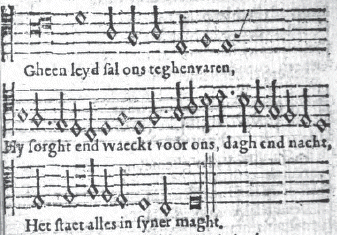 Gheen leyd sal ons teghenvaren,
Hy sorght end waeckt voor ons, dagh end nacht,
Het staet alles in syner maght.